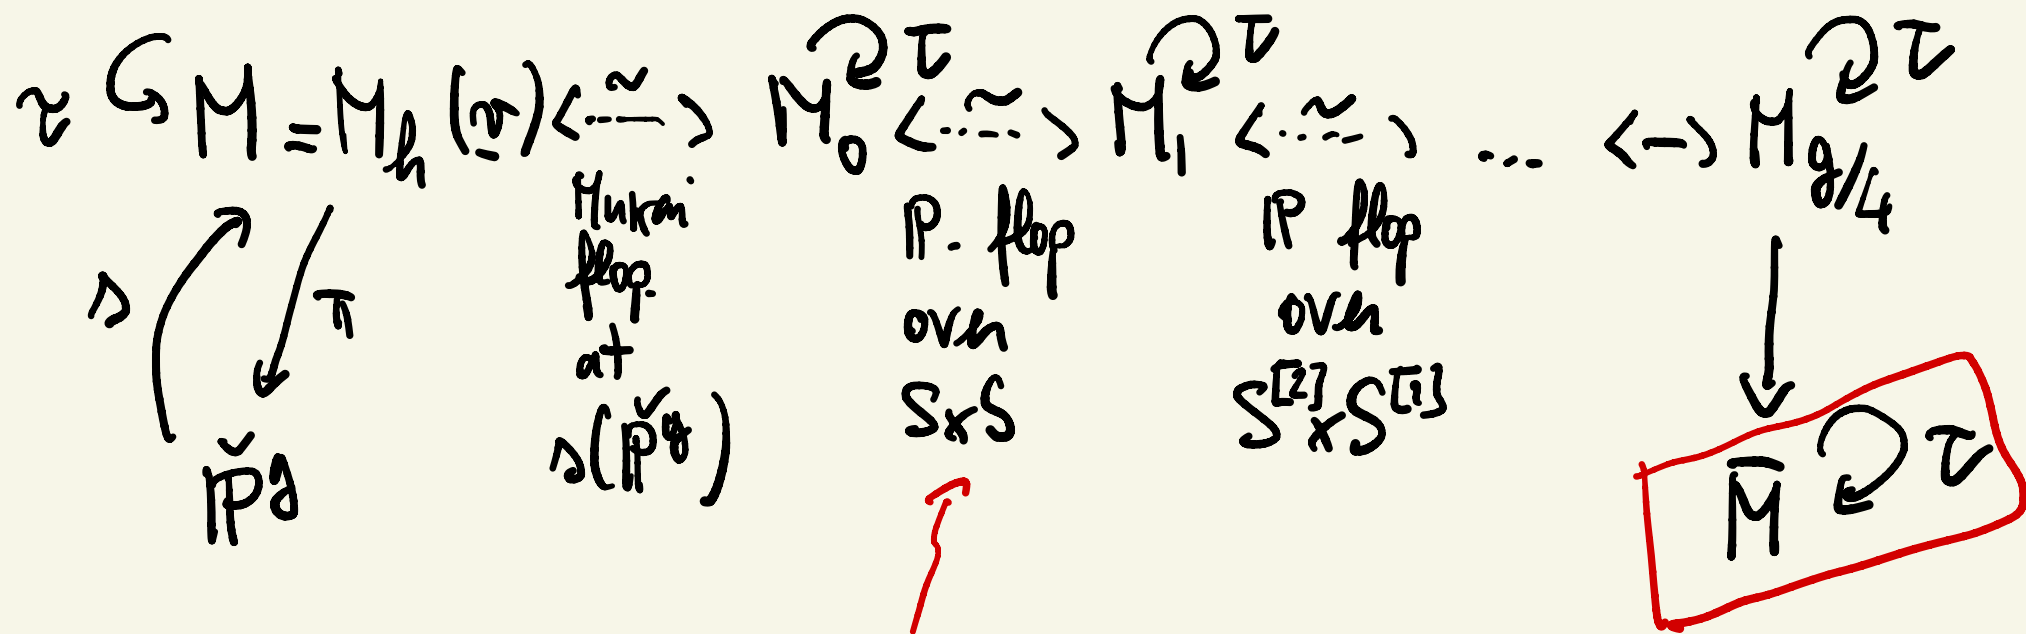 τ M = M_h(v) <--~--> M_0 τ <--~--> M_1 τ <--~--> ... <--> M_{g/4} τ
Mukai flop at s(P̌^g)
P. flop over S×S
P flop over S^{[2]}×S^{[1]}
s π
P̌^g
M̄ τ